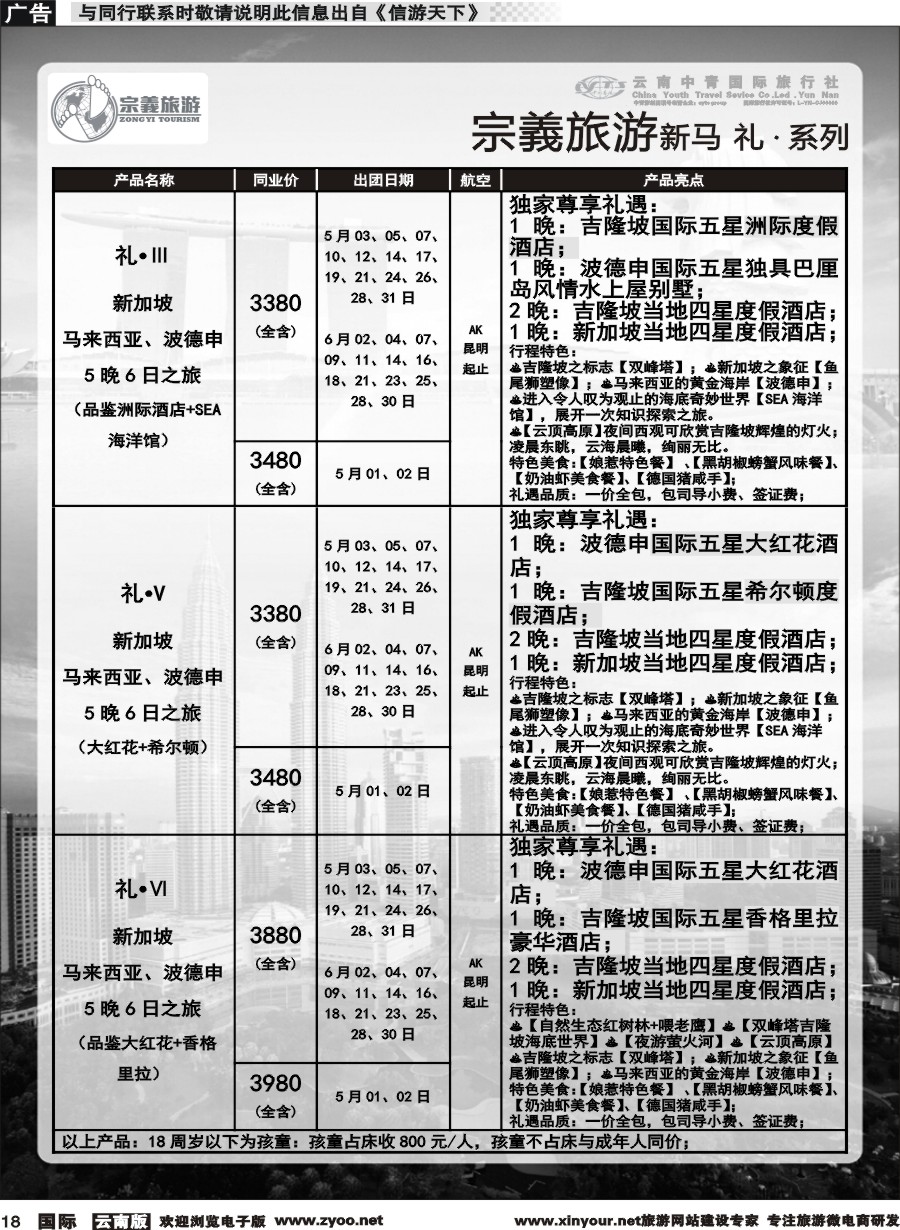 广告
与同行联系时敬请说明此信息出自《信游天下》
宗義旅游
ZONG YI TOURISM
云南中青国际旅行社
China Youth Travel Sevice Co.,Led .Yun Nan
宗義旅游新马 礼·系列
产品名称 同业价 出团日期 航空 产品亮点
礼•Ⅲ
新加坡
马来西亚、波德申
5晚6日之旅
（品鉴洲际酒店+SEA
海洋馆）
3380
（全含）
5月03、05、07、
10、12、14、17、
19、21、24、26、
28、31日
6月02、04、07、
09、11、14、16、
18、21、23、25、
28、30日
3480
（全含）
5月01、02日
AK
昆明
起止
独家尊享礼遇：
1 晚：吉隆坡国际五星洲际度假
酒店；
1 晚：波德申国际五星独具巴厘
岛风情水上屋别墅；
2晚：吉隆坡当地四星度假酒店；
1晚：新加坡当地四星度假酒店；
行程特色：
♨吉隆坡之标志【双峰塔】；♨新加坡之象征【鱼
尾狮塑像】；♨马来西亚的黄金海岸【波德申】；
♨进入令人叹为观止的海底奇妙世界【SEA 海洋
馆】，展开一次知识探索之旅。
♨【云顶高原】夜间西观可欣赏吉隆坡辉煌的灯火；
凌晨东眺，云海晨曦，绚丽无比。
特色美食：【娘惹特色餐】、【黑胡椒螃蟹风味餐】、
【奶油虾美食餐】、【德国猪咸手】；
礼遇品质：一价全包，包司导小费、签证费；
礼•Ⅴ
新加坡
马来西亚、波德申
5晚6日之旅
（大红花+希尔顿）
3380
（全含）
5月03、05、07、
10、12、14、17、
19、21、24、26、
28、31日
6月02、04、07、
09、11、14、16、
18、21、23、25、
28、30日
3480
（全含）
5月01、02日
AK
昆明
起止
独家尊享礼遇：
1 晚：波德申国际五星大红花酒
店；
1 晚：吉隆坡国际五星希尔顿度
假酒店；
2晚：吉隆坡当地四星度假酒店；
1晚：新加坡当地四星度假酒店；
行程特色：
♨吉隆坡之标志【双峰塔】；♨新加坡之象征【鱼
尾狮塑像】；♨马来西亚的黄金海岸【波德申】；
♨进入令人叹为观止的海底奇妙世界【SEA 海洋
馆】，展开一次知识探索之旅。
♨【云顶高原】夜间西观可欣赏吉隆坡辉煌的灯火；
凌晨东眺，云海晨曦，绚丽无比。
特色美食：【娘惹特色餐】、【黑胡椒螃蟹风味餐】、
【奶油虾美食餐】、【德国猪咸手】；
礼遇品质：一价全包，包司导小费、签证费；
礼•Ⅵ
新加坡
马来西亚、波德申
5晚6日之旅
（品鉴大红花+香格
里拉）
3880
（全含）
5月03、05、07、
10、12、14、17、
19、21、24、26、
28、31日
6月02、04、07、
09、11、14、16、
18、21、23、25、
28、30日
3980
（全含）
5月01、02日
AK
昆明
起止
独家尊享礼遇：
1 晚：波德申国际五星大红花酒
店；
1 晚：吉隆坡国际五星香格里拉
豪华酒店；
2晚：吉隆坡当地四星度假酒店；
1晚：新加坡当地四星度假酒店；
行程特色：
♨【自然生态红树林+喂老鹰】♨【双峰塔吉隆
坡海底世界】♨【夜游萤火河】♨【云顶高原】
♨吉隆坡之标志【双峰塔】；♨新加坡之象征【鱼
尾狮塑像】；♨马来西亚的黄金海岸【波德申】；
特色美食：【娘惹特色餐】、【黑胡椒螃蟹风味餐】、
【奶油虾美食餐】、【德国猪咸手】；
礼遇品质：一价全包，包司导小费、签证费；
以上产品：18周岁以下为孩童：孩童占床收800元/人，孩童不占床与成年人同价；
18 国际 云南版 欢迎浏览电子版 www.zyoo.net www.xinyour.net旅游网站建设专家 专注旅游微电商研发